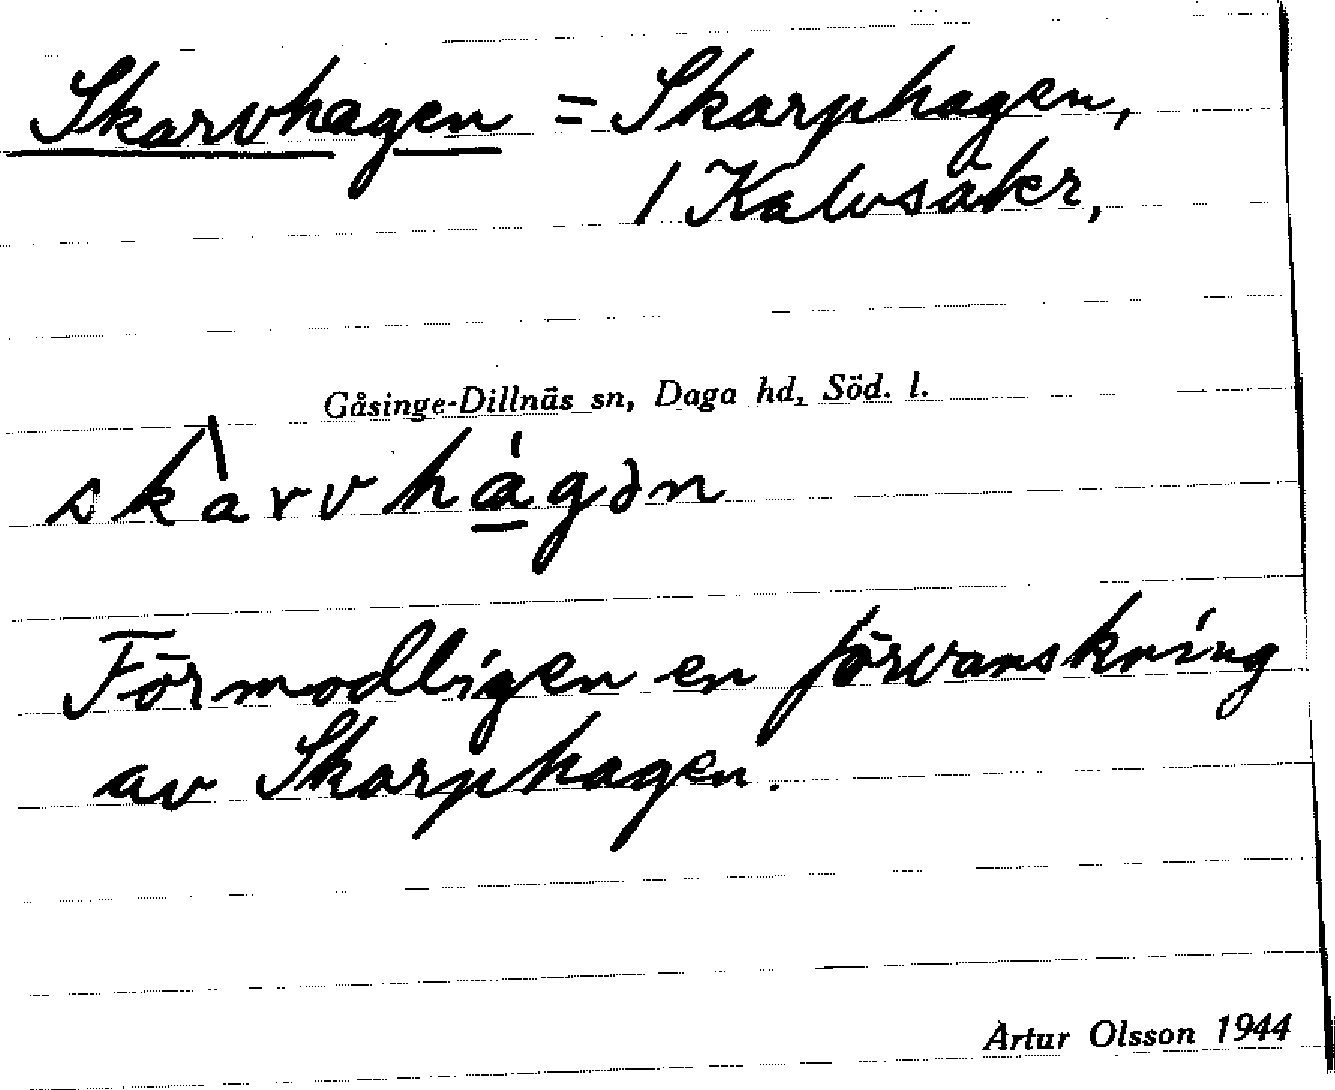 Skarvhagen = Skarphagen,
/ Kalvsäkr,
Gåsinge-Dillnäs sn, Daga hd, Söd. l.
skàrvhágən
Förmodligen en förvanskning
av Skarphagen.
Artur Olsson 1944